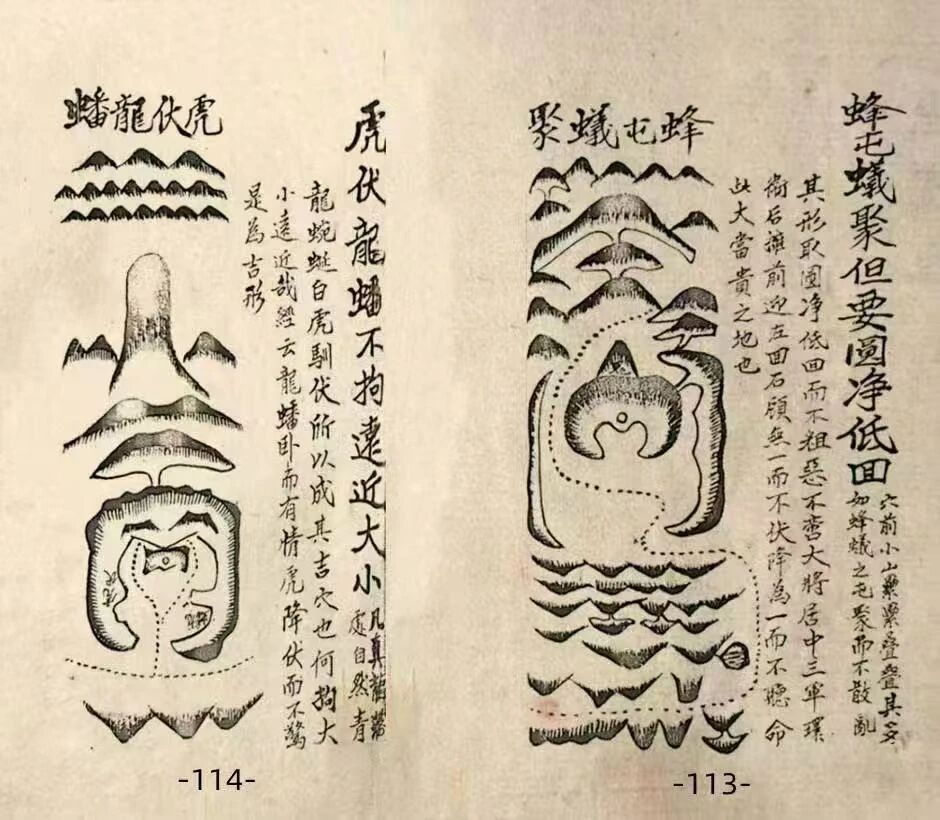 蜂屯蟻聚但要圓净低回
穴前小山纍纍疊疊其多
如蜂蟻之屯聚而不散亂
其形取圓净低回而不粗惡不蠻大將居中三軍環
衛后擁前迎左回石顧無一而不伏降為一而不聽命
此大當貴之地也
蜂屯蟻聚
-113-
虎伏龍蟠不拘遠近大小
凡真龍落
處自然青
龍蜿蜒白虎馴伏所以成其吉穴也何拘大
小遠近哉經云龍蟠卧而有情虎降伏而不驚
是為吉形
虎伏龍蟠
虎伏
-114-